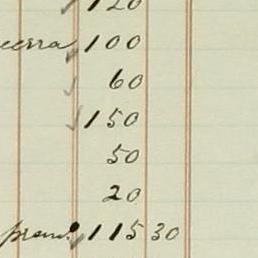 120
100
60
150
50
20
115 30